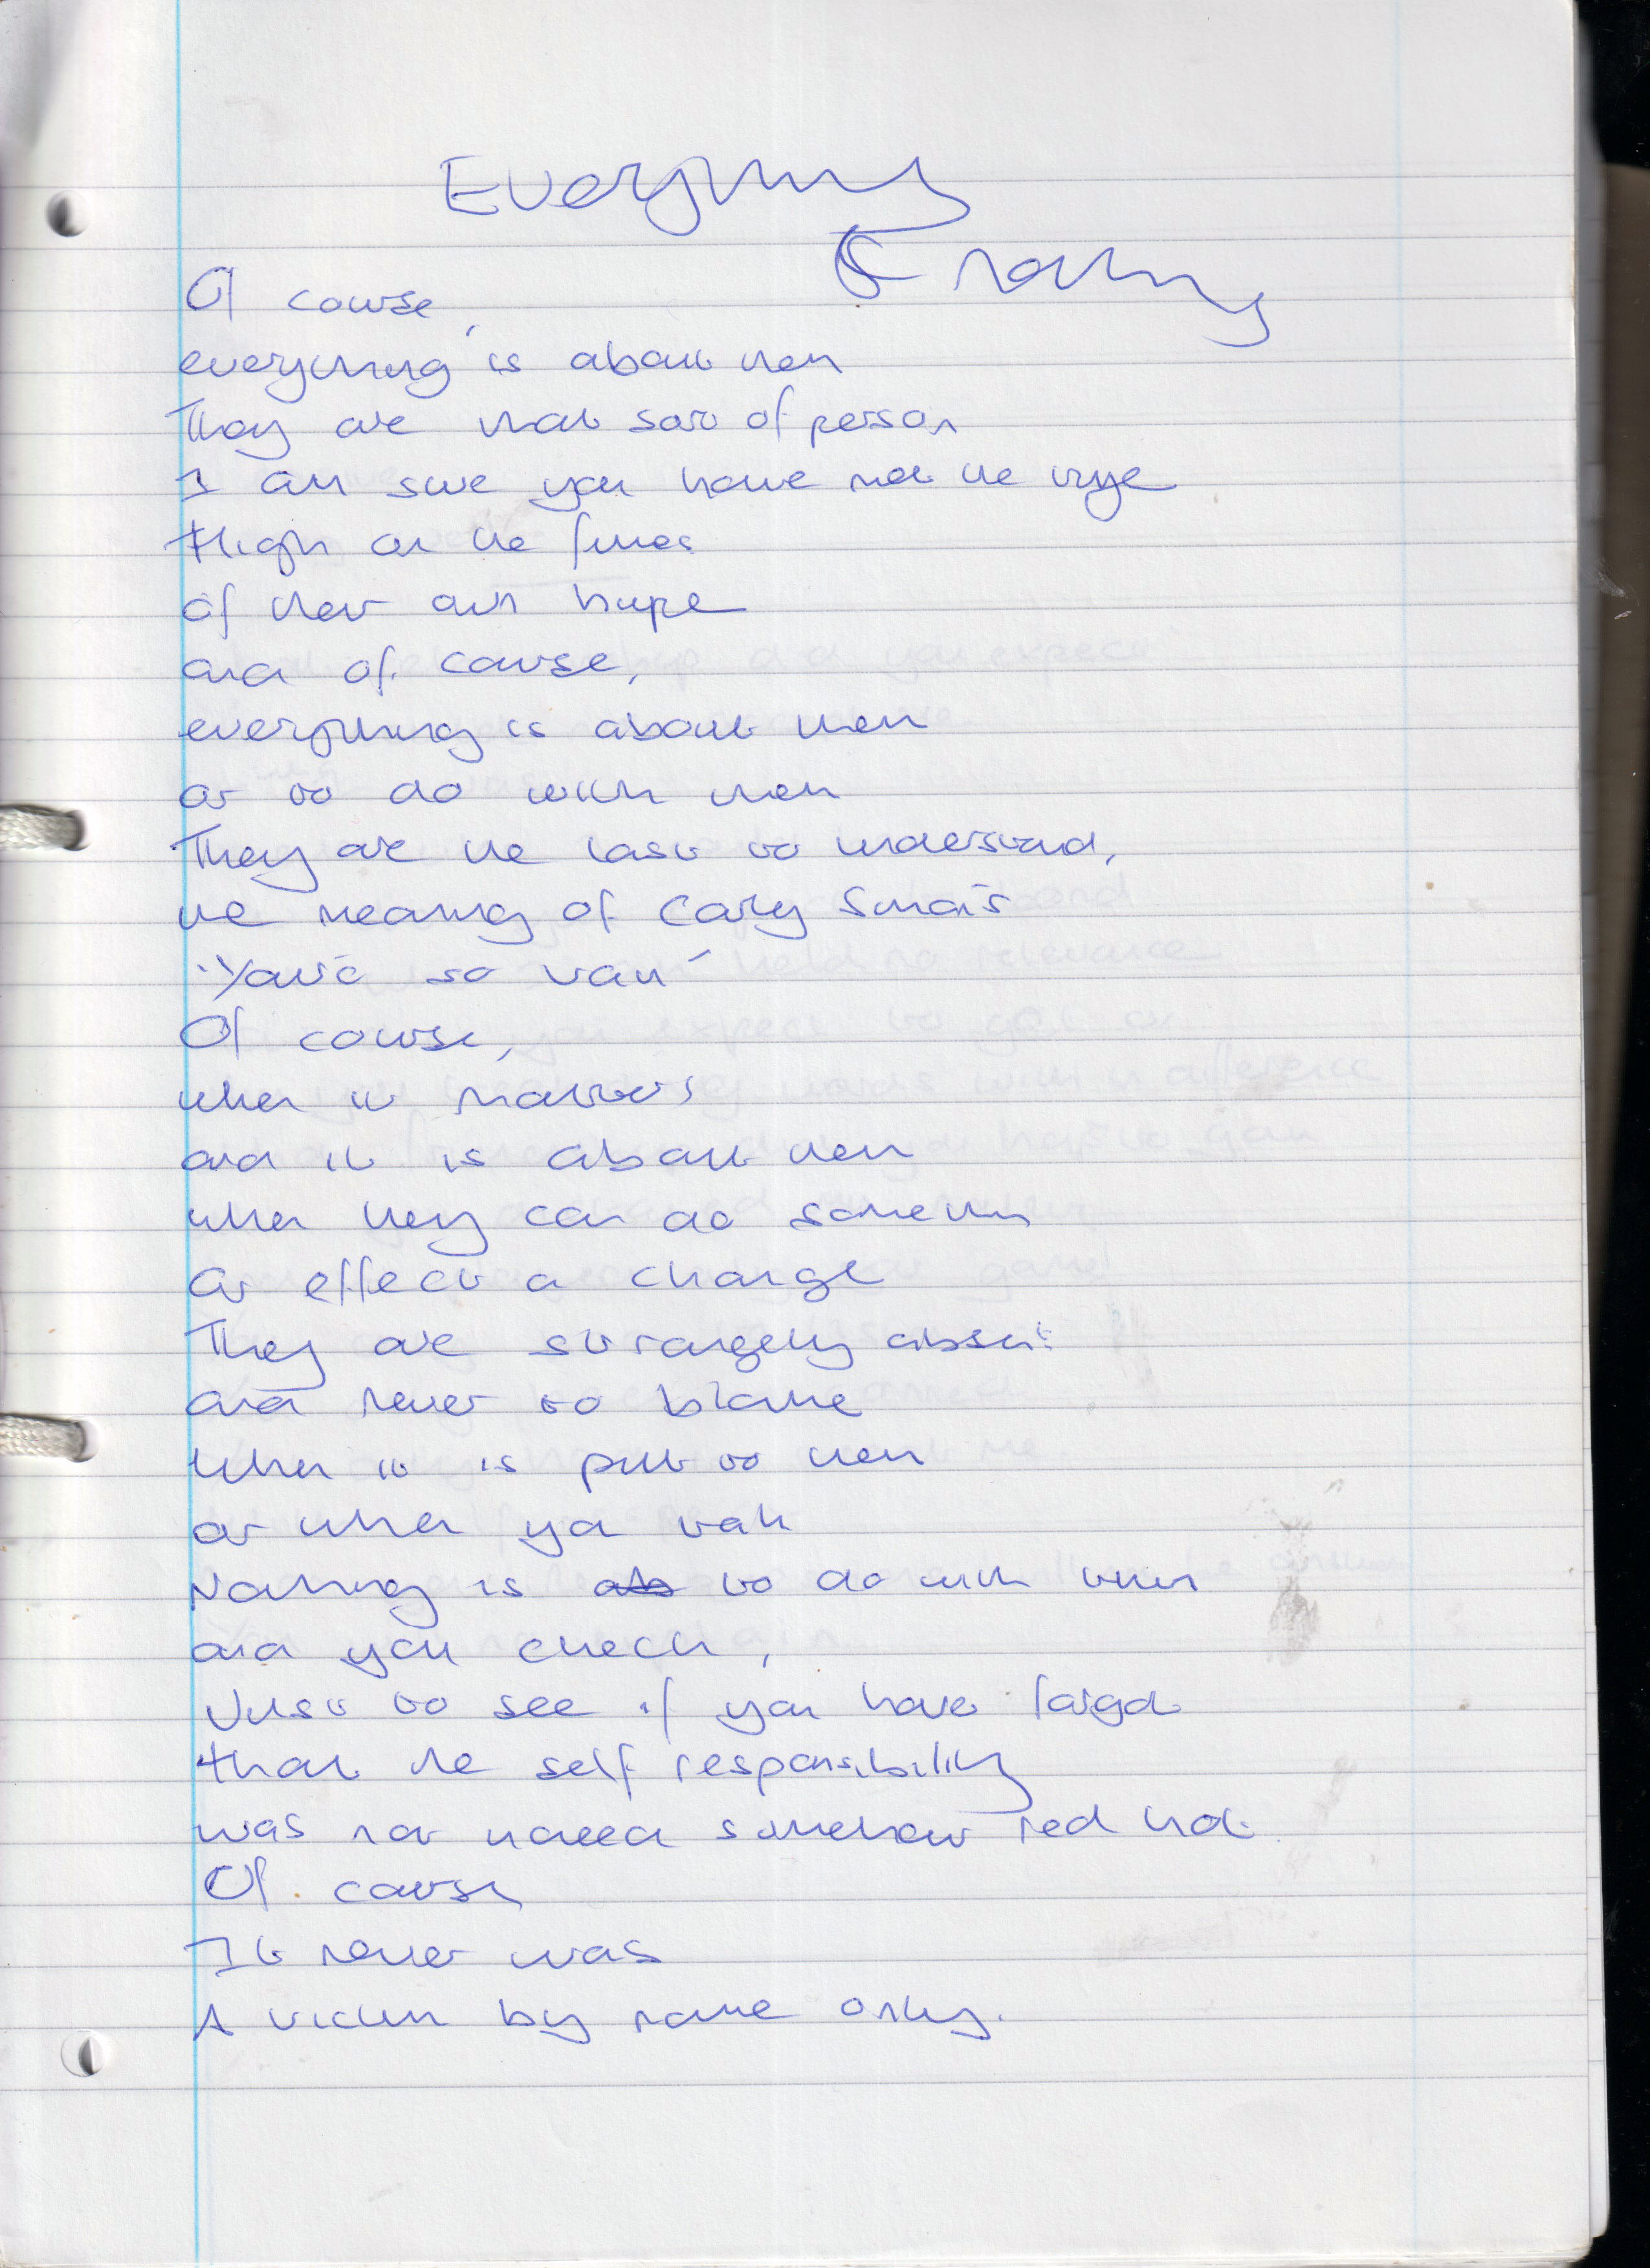 Everything
& nothing
Of course,
everything is about them
They are that sort of person
I am sure you have met the type
High on the fumes
of their own hype
and of course,
everything is about them
or to do with them
They are the last to understand,
the meaning of Carly Simon's
"You're so vain"
Of course,
when it matters
and it is about them
when they can do something
or effect a change
They are strangely absent
and never to blame
When it is put to them
or when you talk
Nothing is to do with them
and you check,
Just to see if you have forgot
that the self responsibility
was not somehow red hot.
Of course
It never was
A victim by name only.